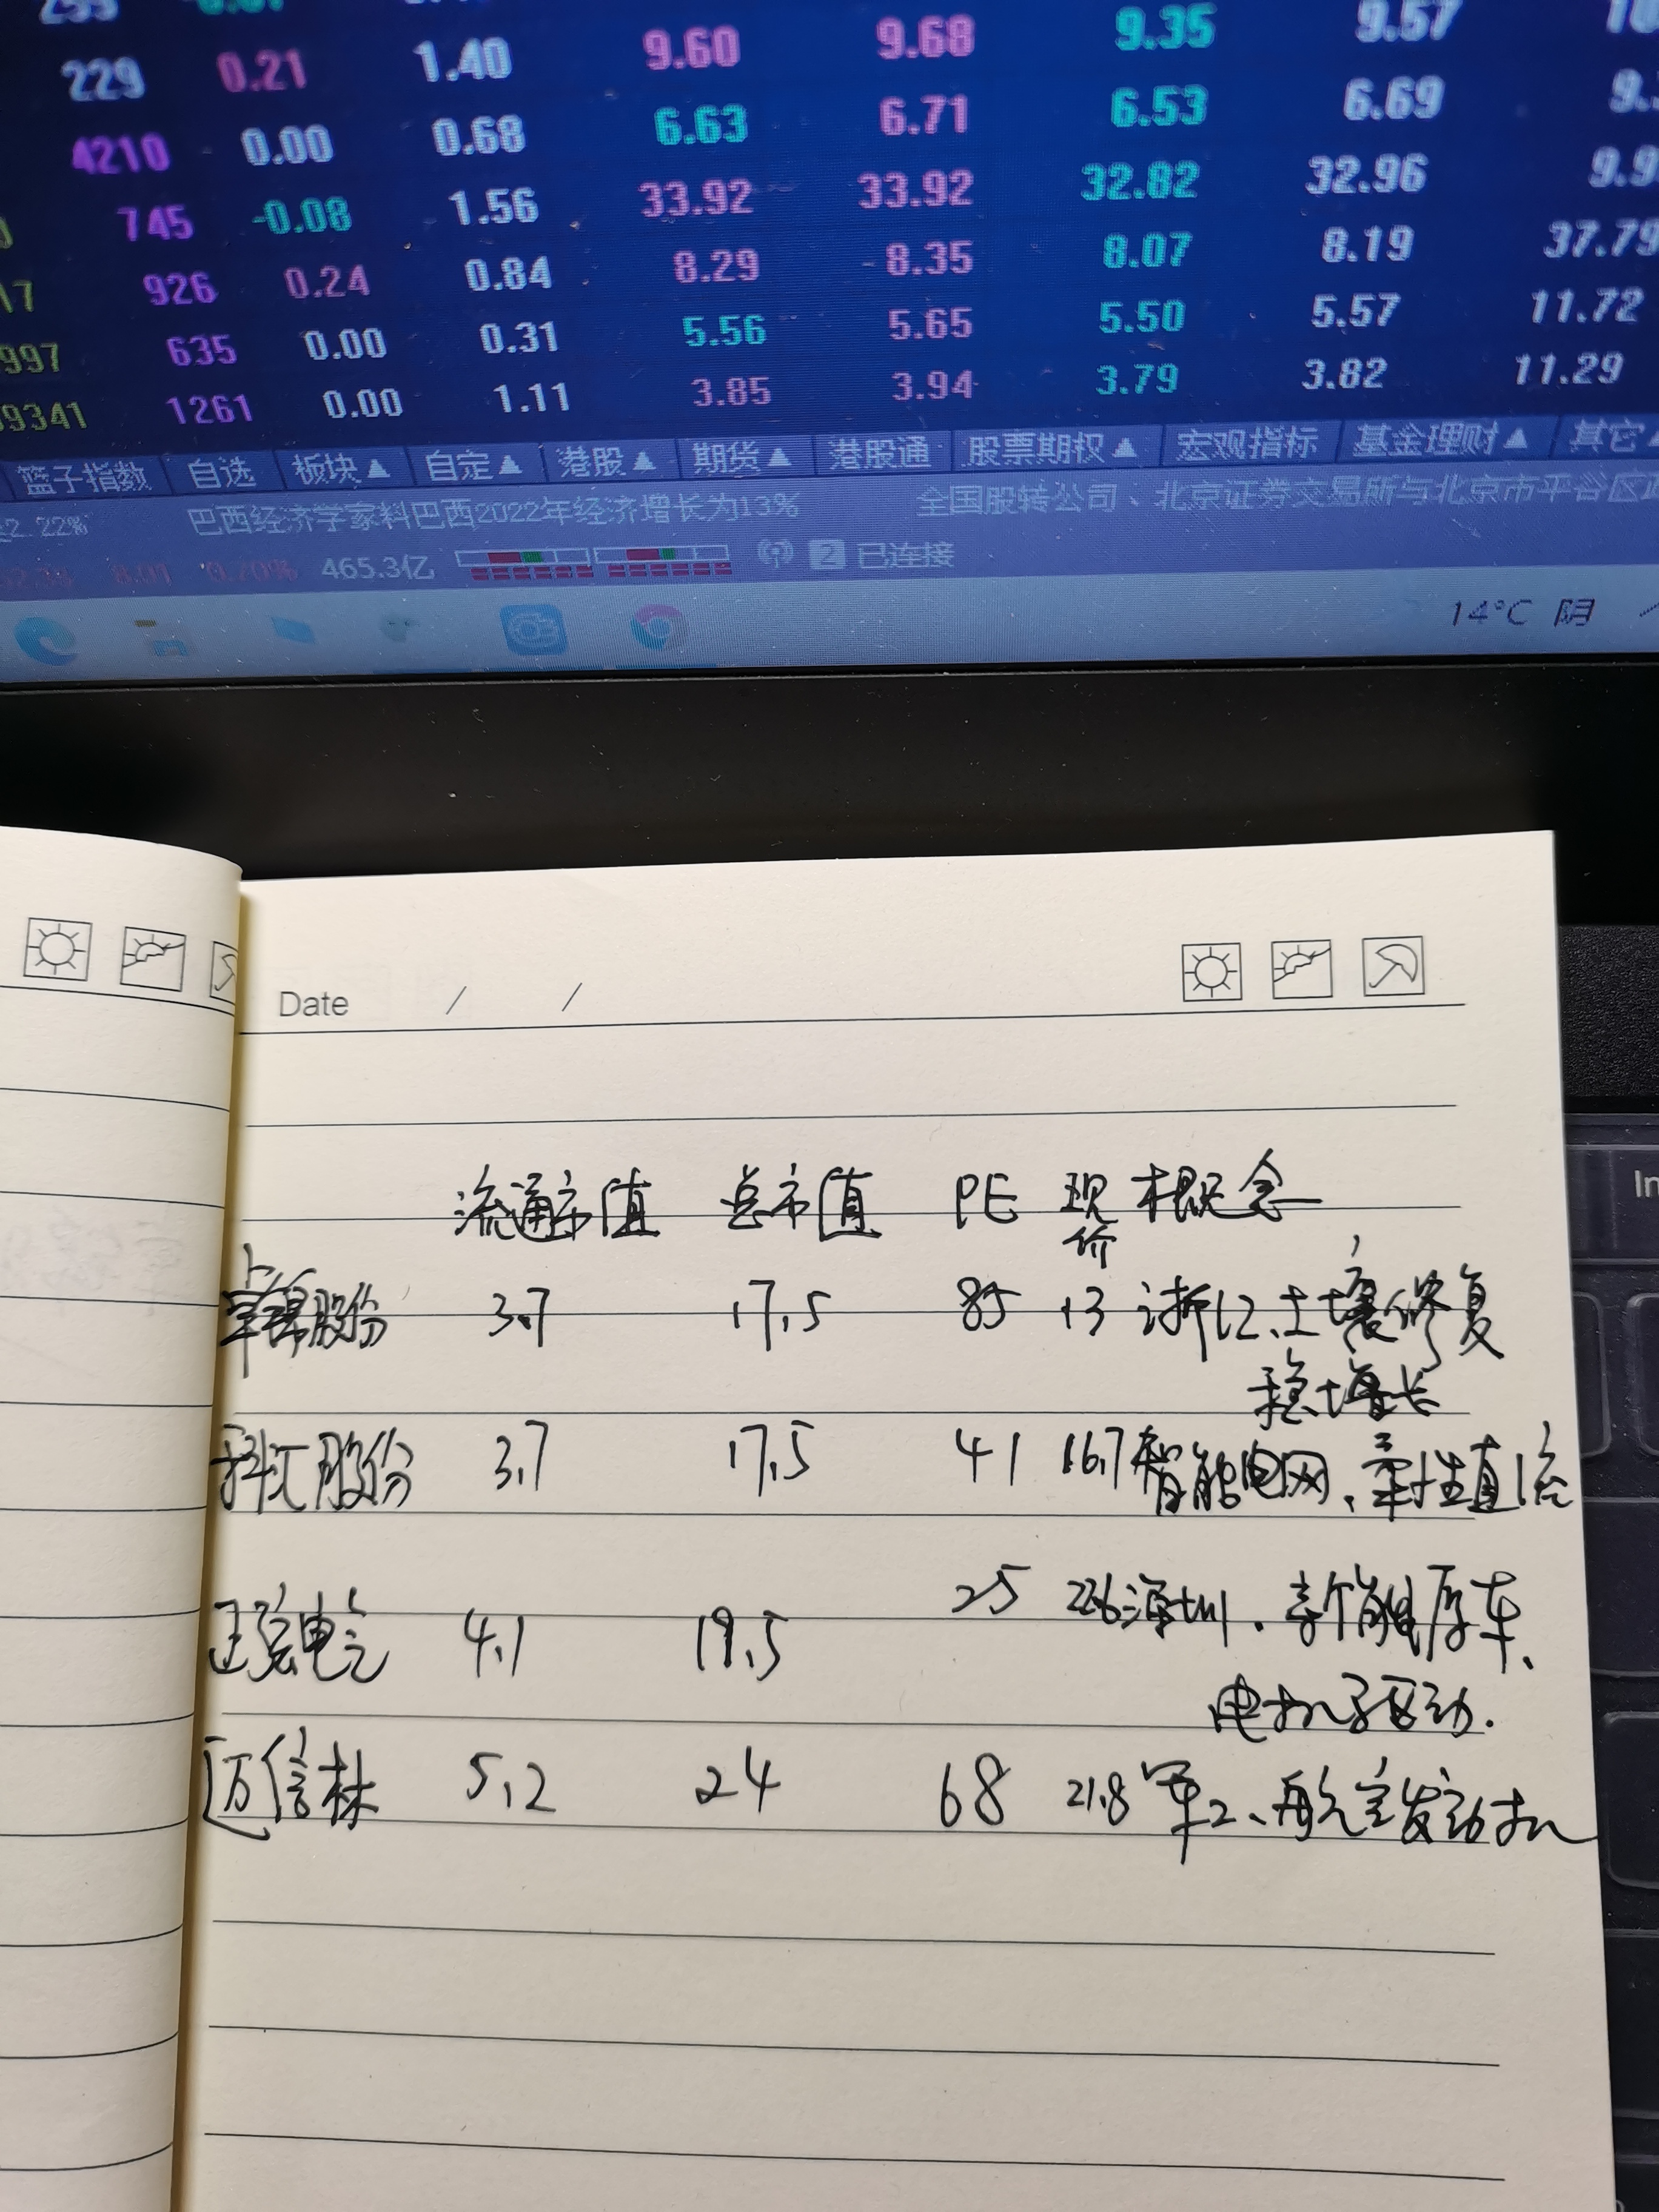 229 0.21 1.40 9.60 9.68 9.35 9.57
4210 0.00 0.68 6.63 6.71 6.53 6.69
745 -0.08 1.56 33.92 33.92 32.82 32.96
926 0.24 0.84 8.29 8.35 8.07 8.19 37.79
997 635 0.00 0.31 5.56 5.65 5.50 5.57 11.72
9341 1261 0.00 1.11 3.85 3.94 3.79 3.82 11.29
篮子指数 自选 板块▲ 自定▲ 港股▲ 期货▲ 港股通 股票期权▲ 宏观指标 基金理财▲ 其它▲
2.22% 巴西经济学家料巴西2022年经济增长为13% 全国股转公司、北京证券交易所与北京市平谷区
0.70% 465.3亿 2 已连接
14°C 阴
Date / /
流通市值 总市值 PE 现价 概念
卓锦股份 3.7 17.5 85 13 浙江、土壤修复
稳增长
科汇股份 3.7 17.5 41 16.7 智能电网、柔性直流
正弦电气 4.1 19.5 25 22.6 深圳、新能源车、
电机驱动.
迈信林 5.2 24 68 21.8 军工、航空发动机
In